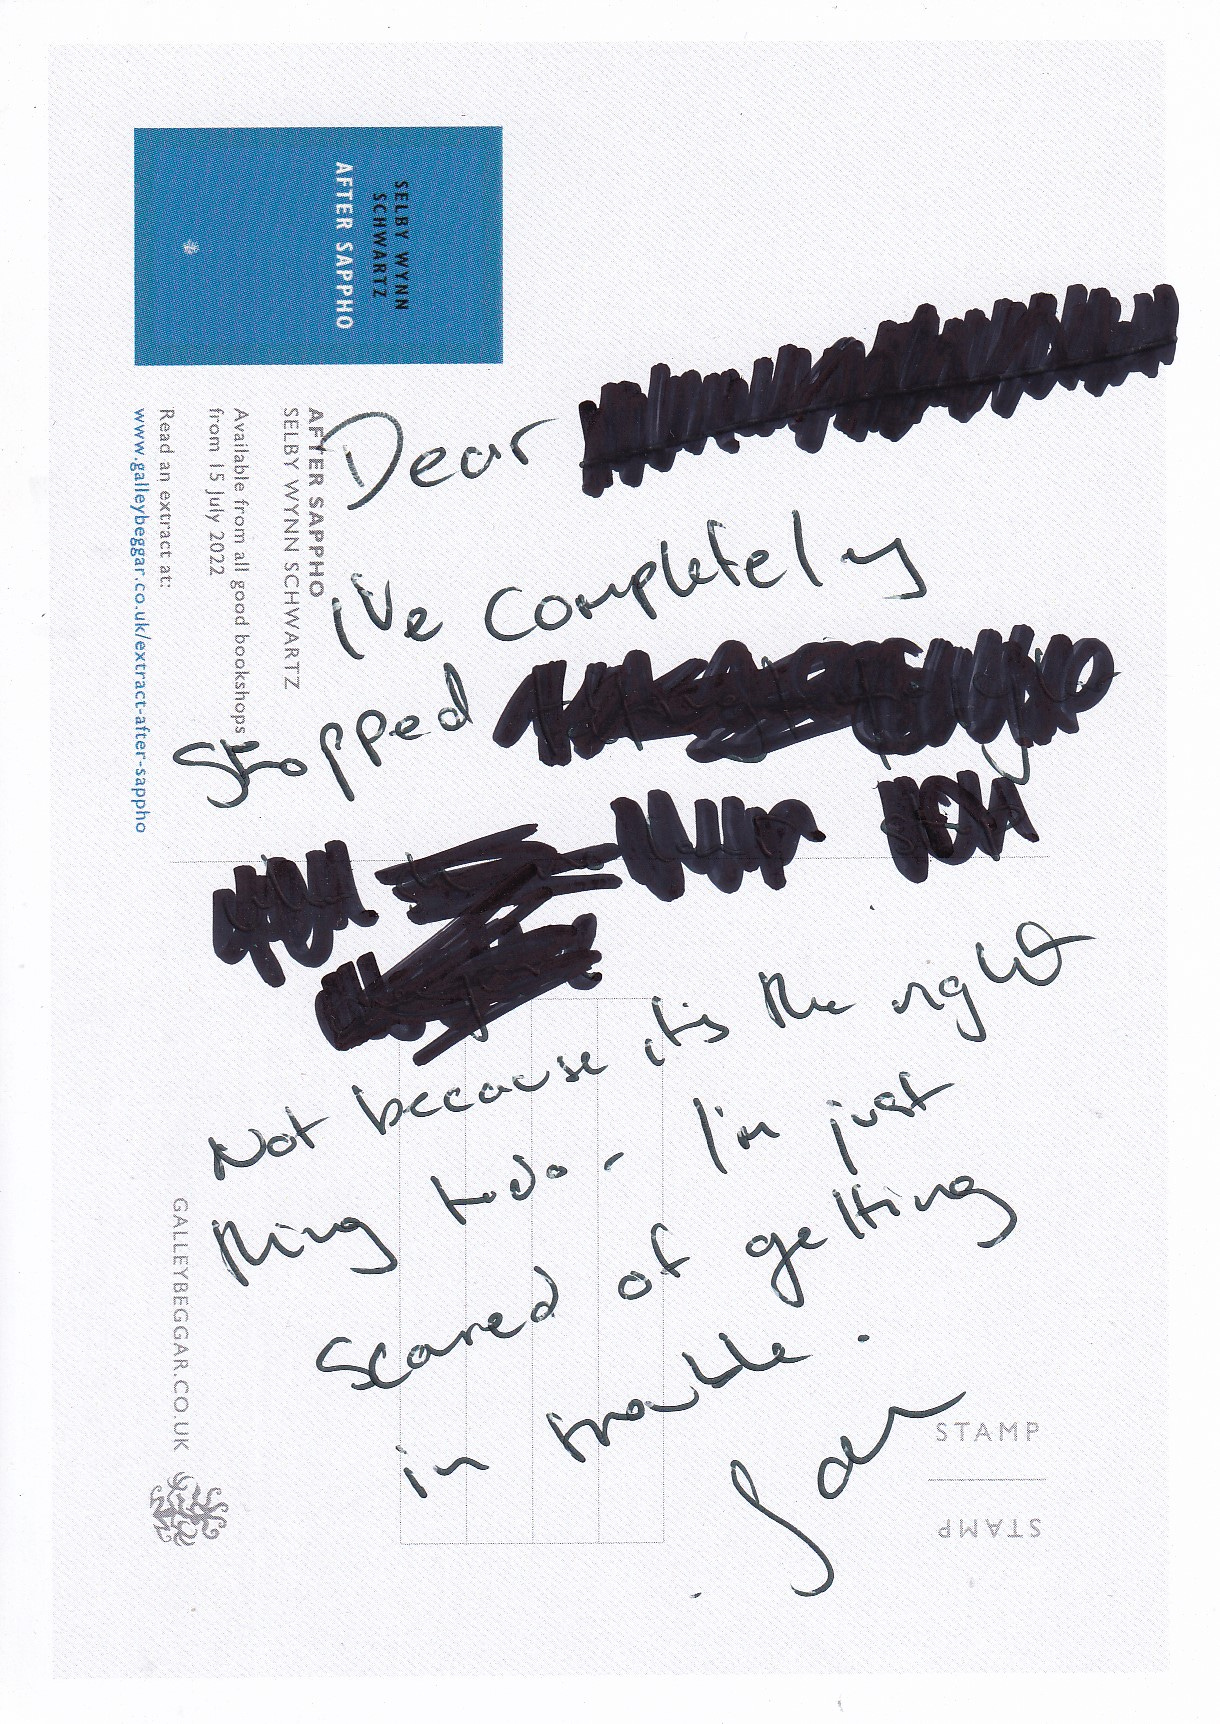 SELBY WYNN
SCHWARTZ
AFTER SAPPHO
AFTER SAPPHO
SELBY WYNN SCHWARTZ
Available from all good bookshops
from 15 July 2022
Read an extract at:
www.galleybeggar.co.uk/extract-after-sappho
Dear
I've completely
stopped
Not because it's the right
thing to do - I'm just
scared of getting
in trouble.
GALLEYBEGGAR.CO.UK
STAMP
STAMP